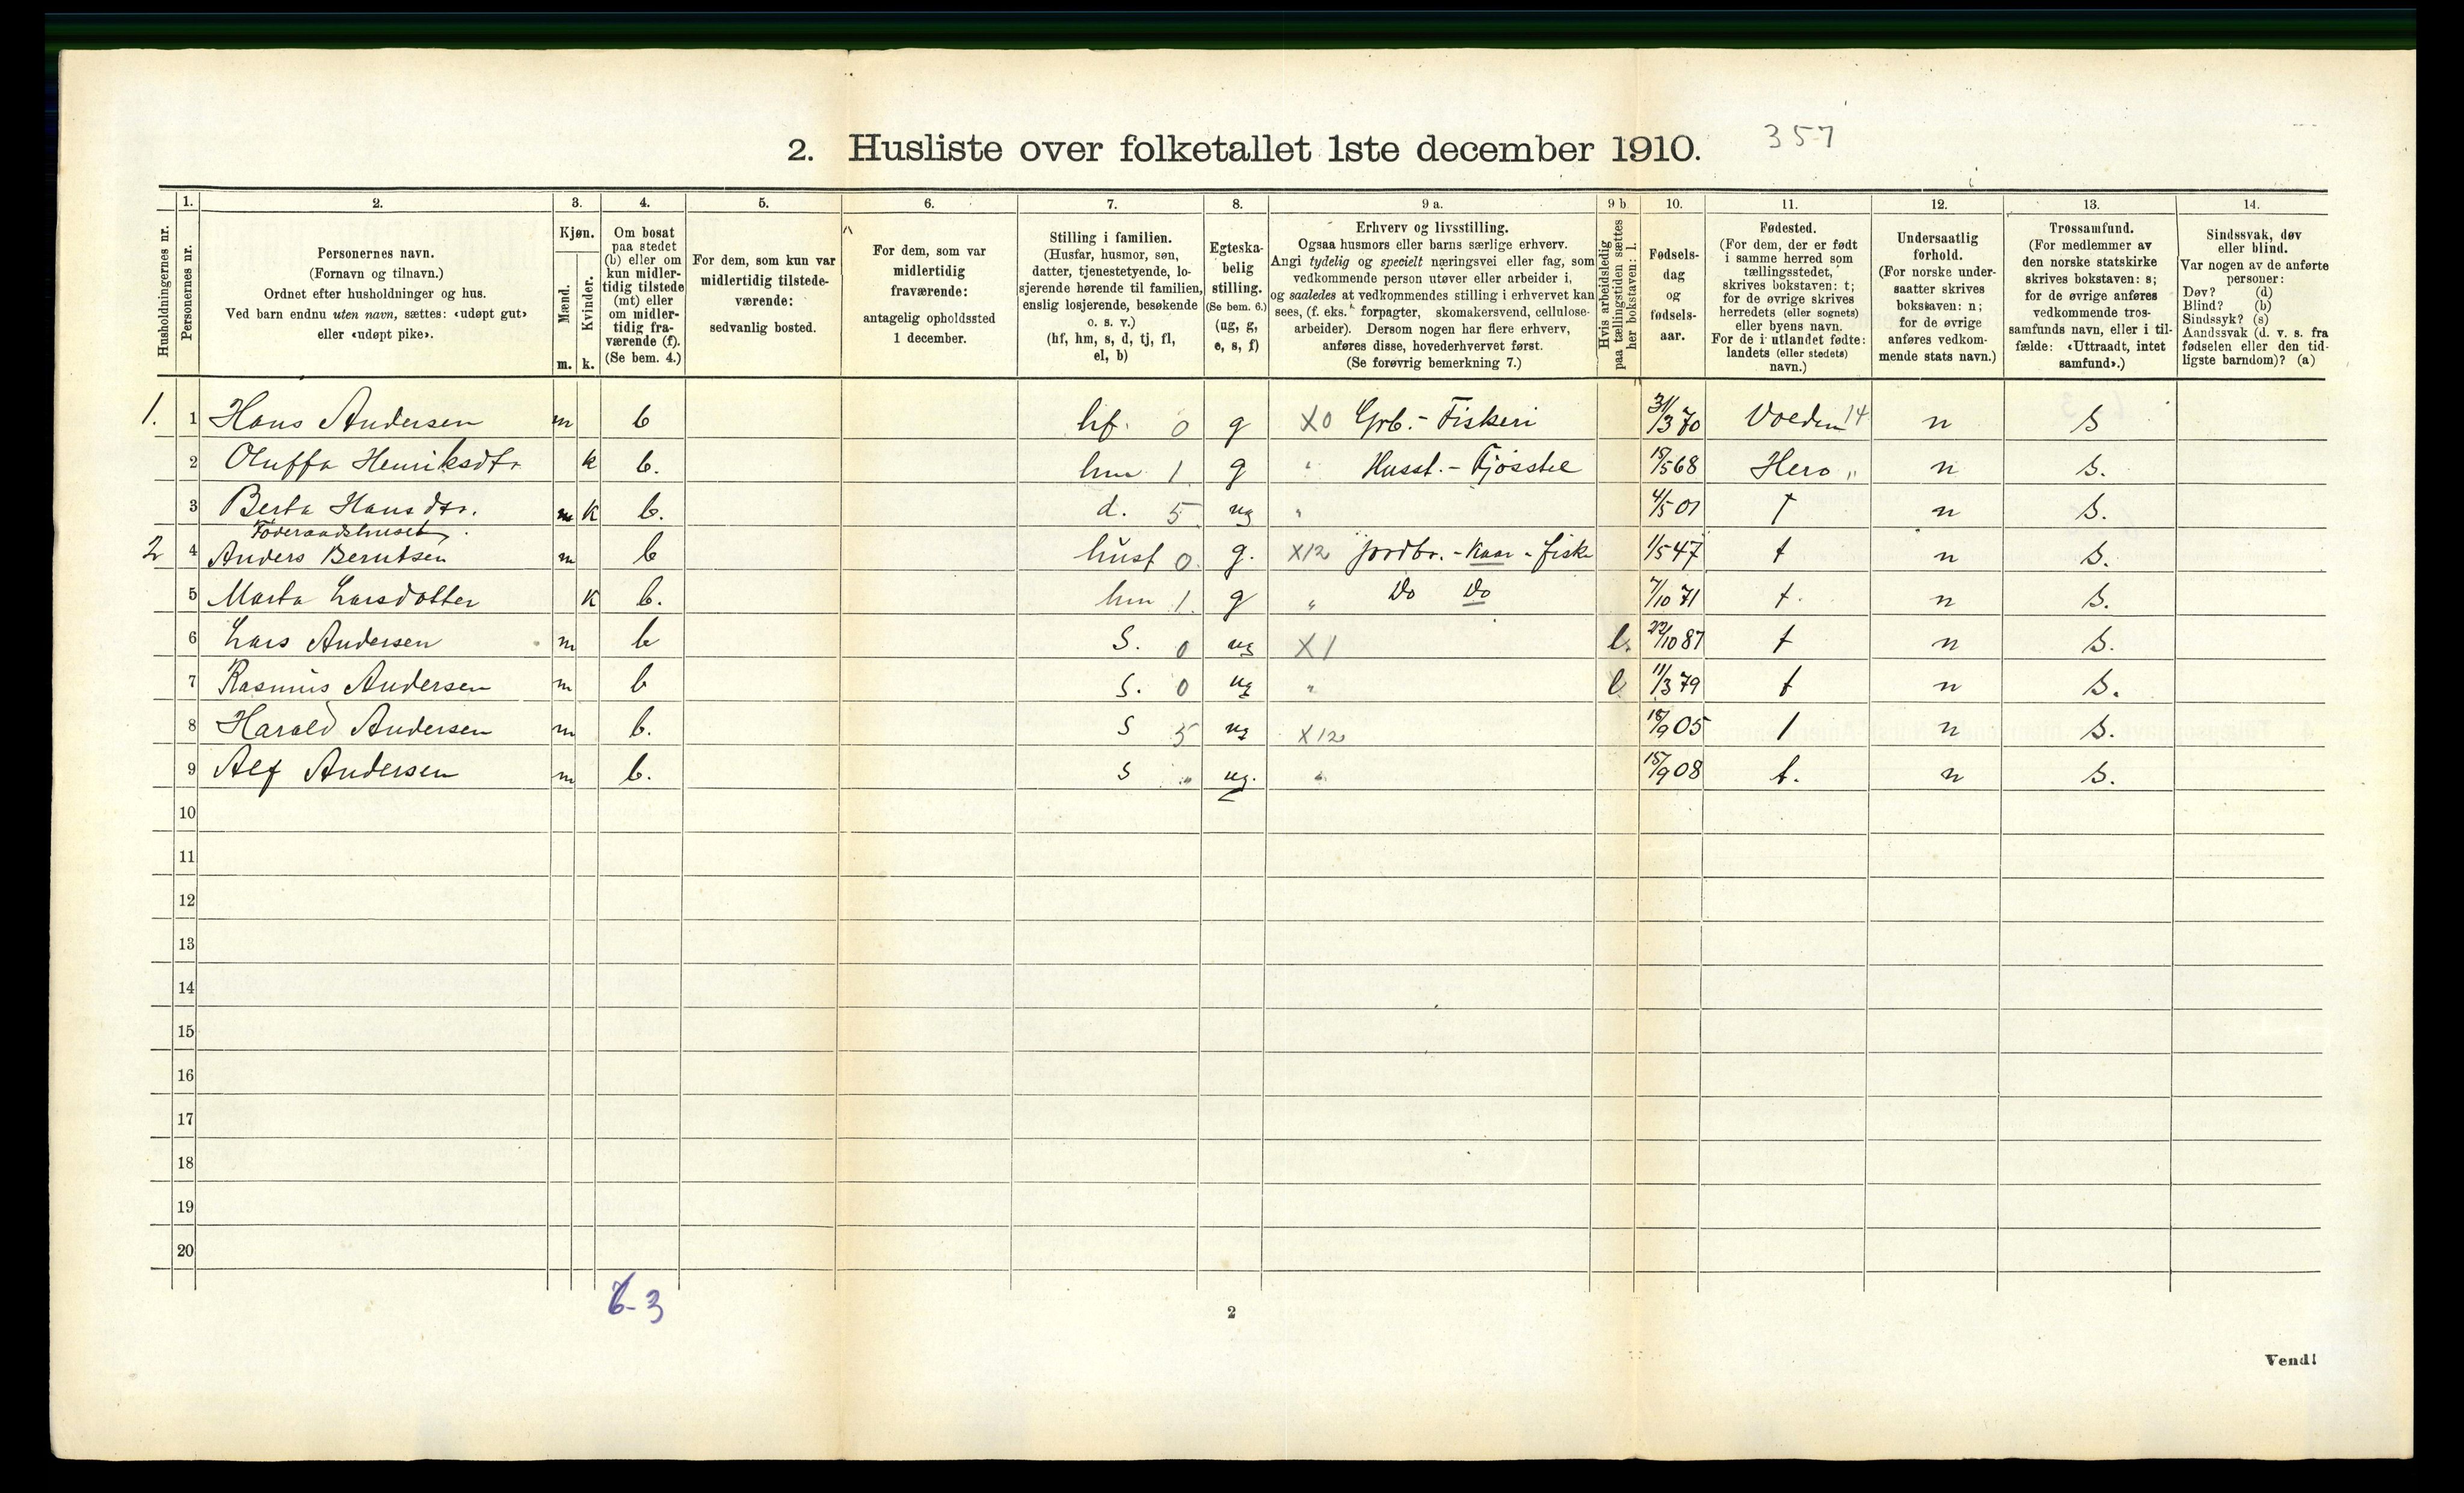 2. Husliste over folketallet 1ste december 1910. 357
Husholdningernes nr.
1. Personernes nr.
2. Personernes navn.
(Fornavn og tilnavn.)
Ordnet efter husholdninger og hus.
Ved barn endnu uten navn, sættes: «udøpt gut»
eller «udøpt pike».
3. Kjøn.
Mænd. m.
Kvinder. k.
4. Om bosat
paa stedet
(b) eller om
kun midler-
tidig tilstede
(mt) eller
om midler-
tidig fra-
værende (f).
(Se bem. 4.)
5. For dem, som kun var
midlertidig tilstede-
værende:
sedvanlig bosted.
6. For dem, som var
midlertidig
fraværende:
antagelig opholdssted
1 december.
7. Stilling i familien.
(Husfar, husmor, søn,
datter, tjenestetyende, lo-
sjerende hørende til familien,
enslig losjerende, besøkende
o. s. v.)
(hf, hm, s, d, tj, fl,
el, b)
8. Egteska-
belig
stilling.
(Se bem. 6.)
(ug, g,
e, s, f)
9 a. Erhverv og livsstilling.
Ogsaa husmors eller barns særlige erhverv.
Angi tydelig og specielt næringsvei eller fag, som
vedkommende person utøver eller arbeider i,
og saaledes at vedkommendes stilling i erhvervet kan
sees, (f. eks. forpagter, skomakersvend, cellulose-
arbeider). Dersom nogen har flere erhverv,
anføres disse, hovederhvervet først.
(Se forøvrig bemerkning 7.)
9 b Hvis arbeidsledig
paa tællingstiden sættes
her bokstaven: l.
10. Fødsels-
dag
og
fødsels-
aar.
11. Fødested.
(For dem, der er født
i samme herred som
tællingsstedet,
skrives bokstaven: t;
for de øvrige skrives
herredets (eller sognets)
eller byens navn.
For de i utlandet fødte:
landets (eller stedets)
navn.)
12. Undersaatlig
forhold.
(For norske under-
saatter skrives
bokstaven: n;
for de øvrige
anføres vedkom-
mende stats navn.)
13. Trossamfund.
(For medlemmer av
den norske statskirke
skrives bokstaven: s;
for de øvrige anføres
vedkommende tros-
samfunds navn, eller i til-
fælde: «Uttraadt, intet
samfund».)
14. Sindssvak, døv
eller blind.
Var nogen av de anførte
personer:
Døv? (d)
Blind? (b)
Sindssyk? (s)
Aandssvak (d. v. s. fra
fødselen eller den tid-
ligste barndom)? (a)
1. 1 Hans Andersen m b hf. 0 g X0 Grb. - Fiskeri 31/3 70 14 n S
2 Oluffa Henriksdtr k b. hm 1. g " Husst. - Fjösstel 18/5 68 Herö " n S.
3 Berta Hansdtr. k b. d. 5 ug " 4/5 01 t n S.
Föderaadshuset
2 4 Anders Berntsen m b husf 0. g. X12 jordbr. - Kaar - fisk 1/5 47 t n S.
5 Marta Larsdatter k b. hm 1. g " Do Do 7/10 71 t. n S.
6 Lars Andersen m b S. 0 ug X1 l. 22/10 87 t n S.
7 Rasmus Andersen m b S. 0 ug " l 11/3 79 t n S.
8 Harald Andersen m b. S 5 ug X12 18/9 05 t n S.
9 Alf Andersen m b. S " ug. " 15/9 08 t. n S.
10
11
12
13
14
15
16
17
18
19
20
3
2
Vend!